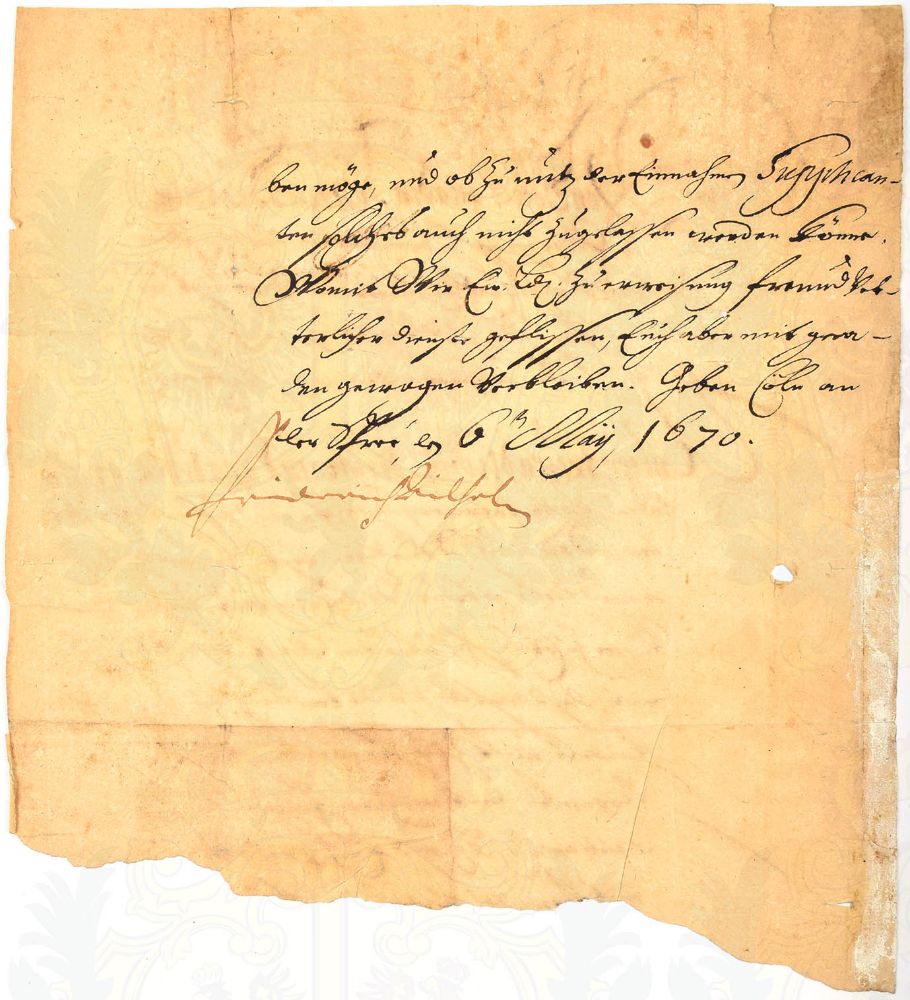 ben möge, und ob zu nutz der Einnahmen Supplican-
ten solches auch nicht zugelassen werden könne.
Womit Wir Ew. Ld. zu erweisung freund Vet-
terlicher dienste geflissen, Euch aber mit gna-
den gewogen Verbleiben. Geben Cöln an
der Spree, den 6t May, 1670.
Friderich Wilhelm